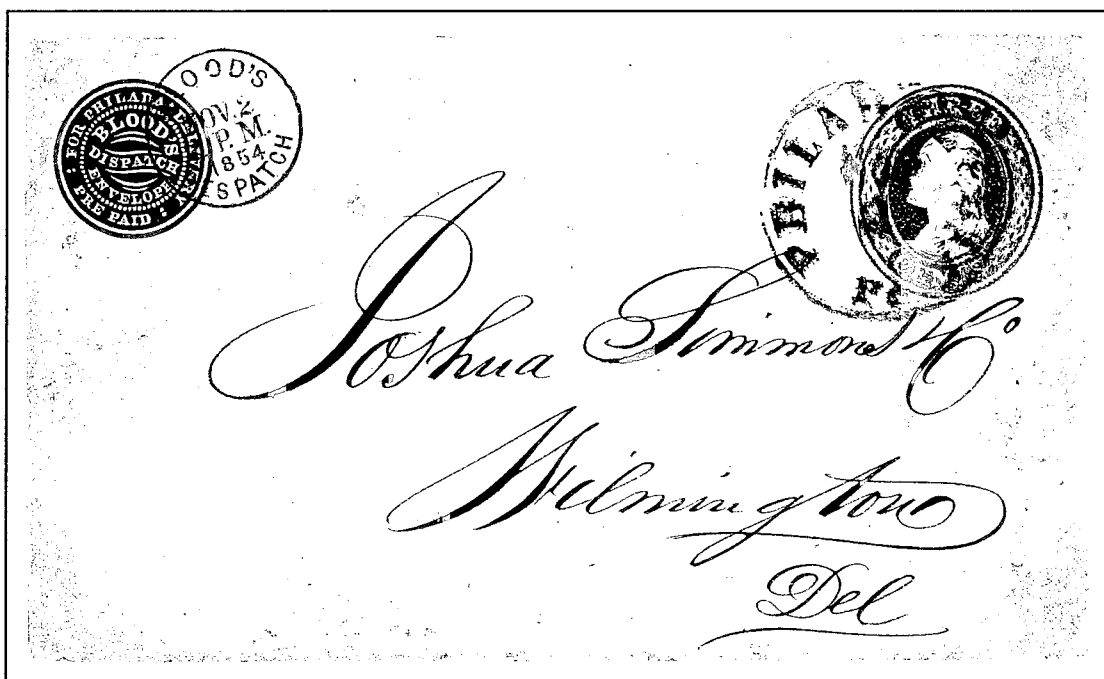 FOR PHILADA. DELIVERY
BLOOD'S
DISPATCH
ENVELOPE
PRE PAID
OOD'S
OV. 2
P. M.
1854
SPATCH
PHILA
THREE
Joshua Simmons & Co
Wilmington
Del